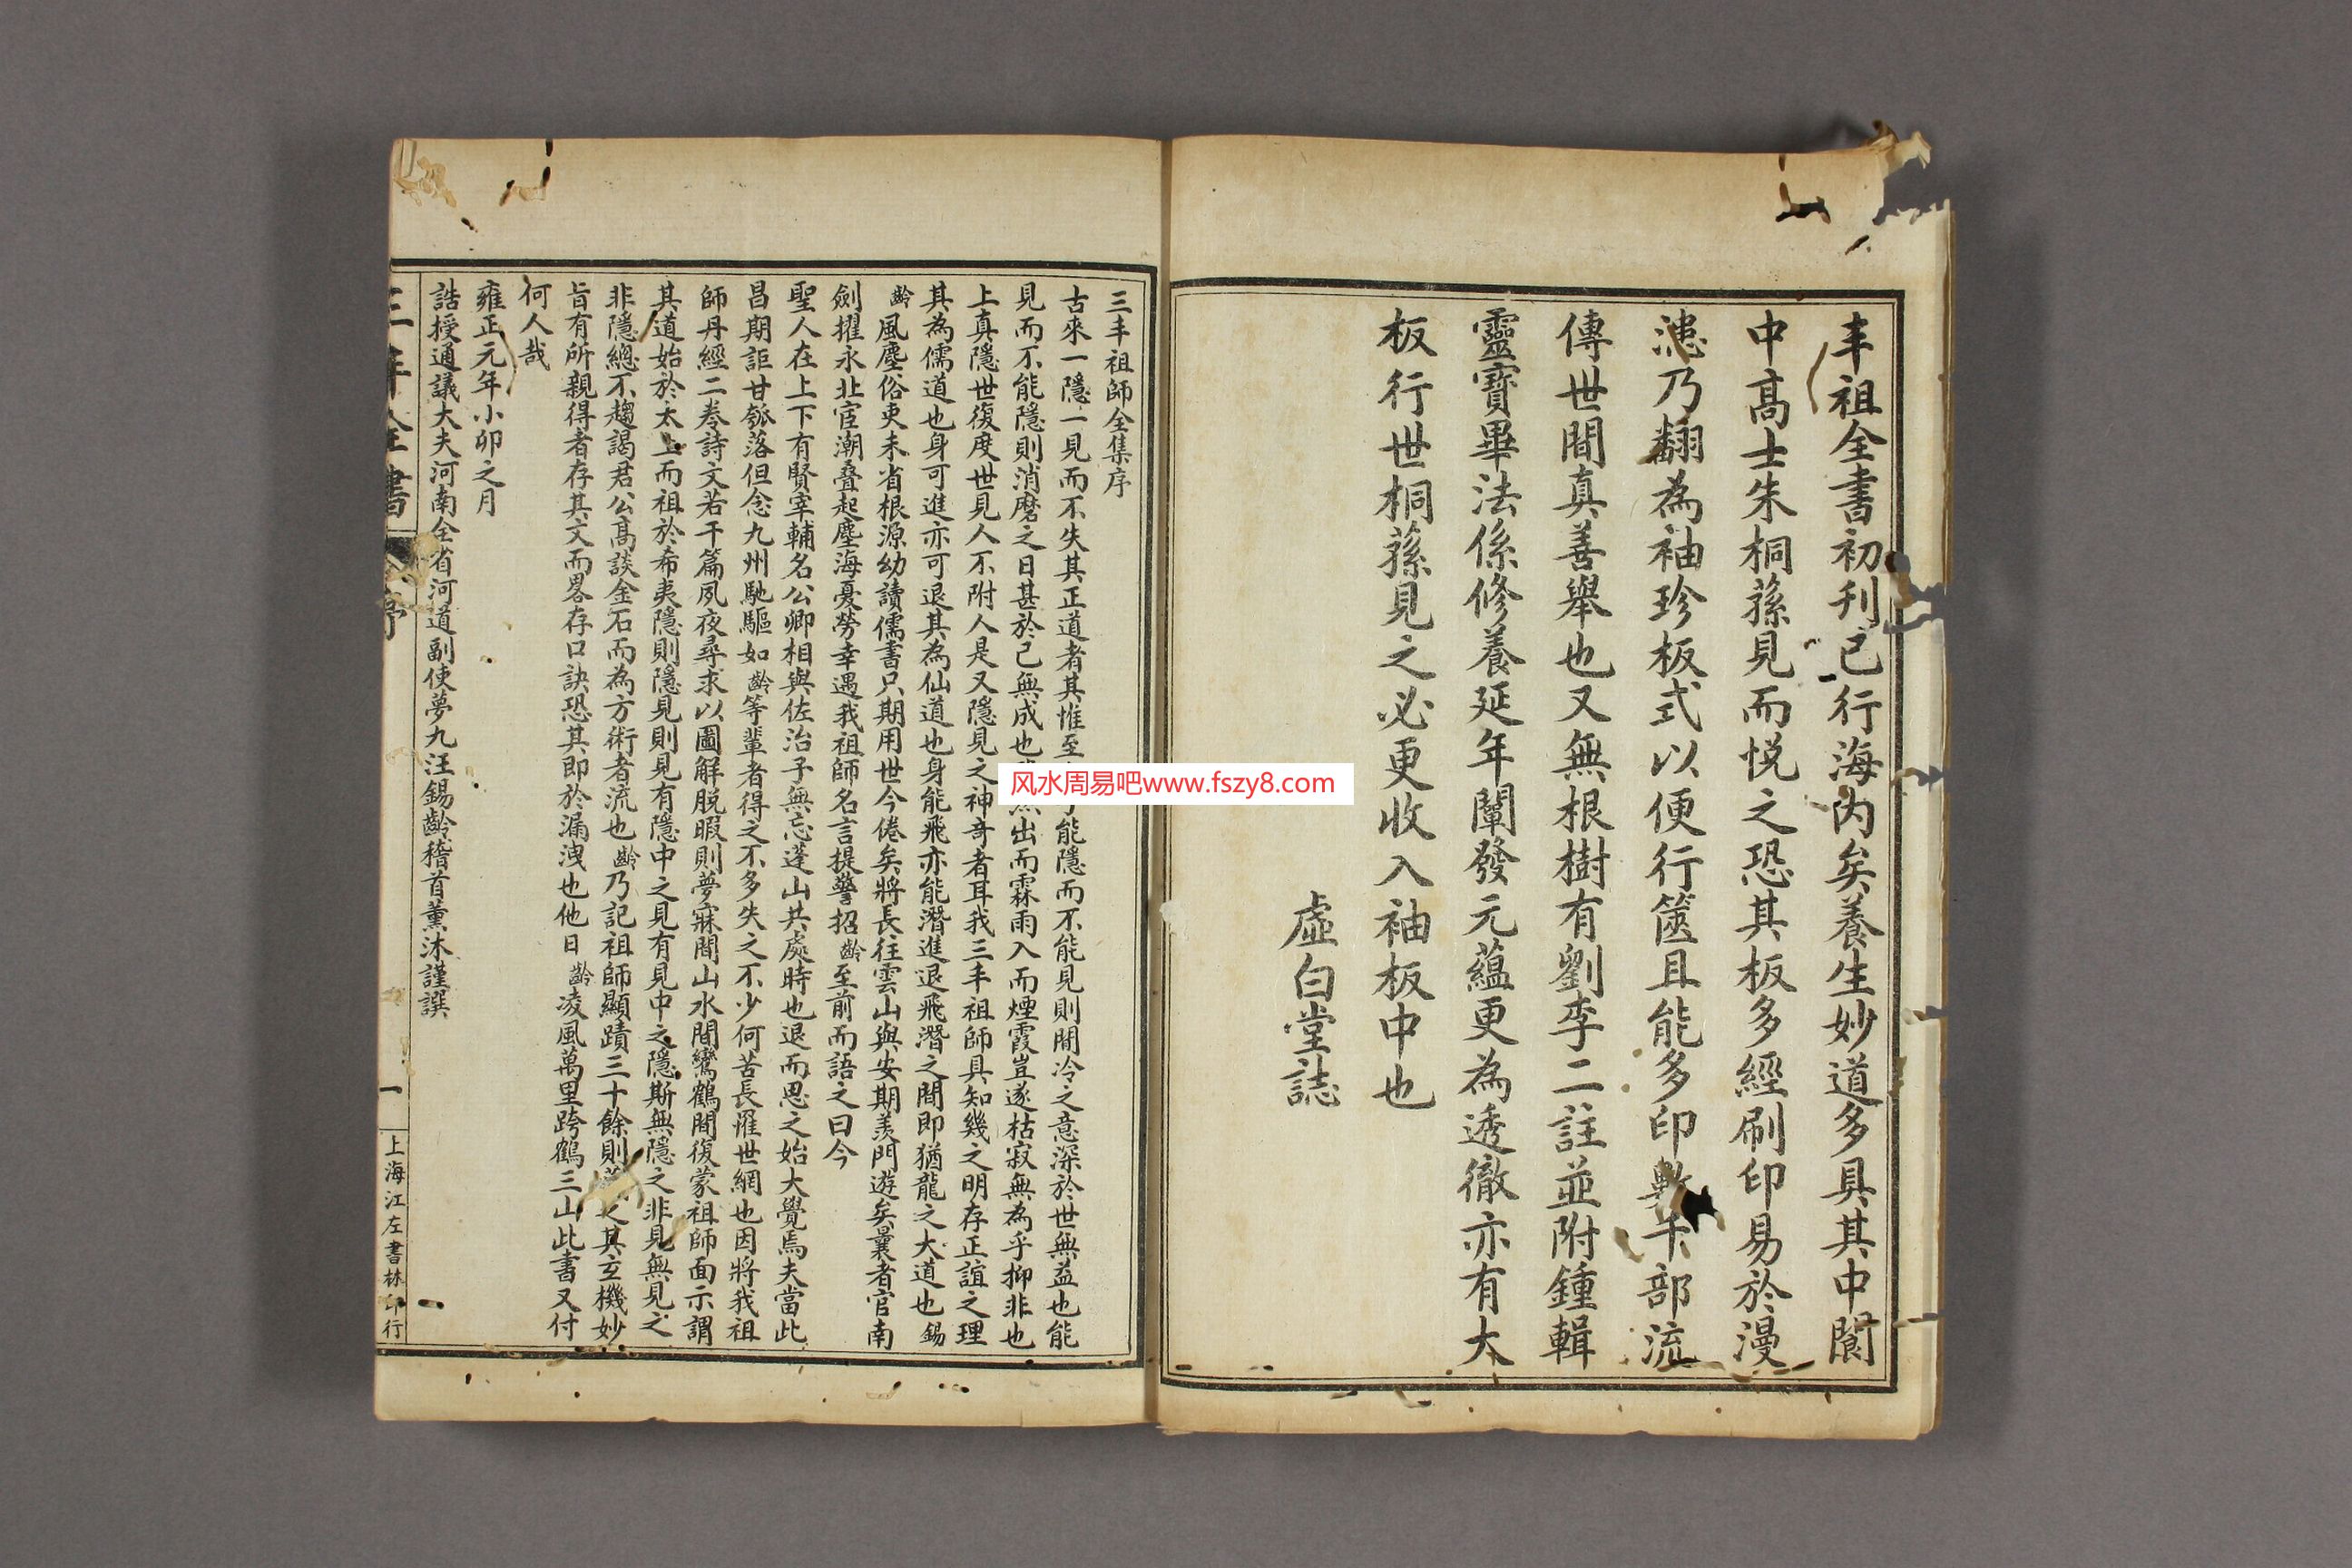 丰祖全書初刋已行海内矣養生妙道多具其中閬
中高士朱桐蓀見而悦之恐其板多經刷印易於漫
漶乃翻為袖珍板式以便行篋且能多印數千部流
傳世間真善舉也又無根樹有劉李二註並附鍾輯
靈寶畢法係修養延年闡發元蘊更為透徹亦有大
板行世桐蓀見之必更收入袖板中也
虛白堂誌
三丰祖師全集序
古來一隱一見而不失其正道者其惟至能隱而不能見則閒冷之意深於世無益也能
見而不能隱則消磨之日甚於己無成也出而霖雨入而煙霞豈遂枯寂無為乎抑非也
上真隱世復度世見人不附人是又隱見之神竒者耳我三丰祖師具知幾之明存正誼之理
其為儒道也身可進亦可退其為仙道也身能飛亦能潛進退飛潛之間即猶龍之大道也錫
齡風塵俗吏未省根源幼讀儒書只期用世今倦矣將長往雲山與安期羨門遊矣曩者官南
劍擢永北宦潮叠起塵海憂勞幸遇我祖師名言提警招齡至前而語之曰今
聖人在上下有賢宰輔名公卿相與佐治子無忘蓬山共處時也退而思之始大覺焉夫當此
昌期詎甘瓠落但念九州馳驅如齡等輩者得之不多失之不少何苦長罹世網也因將我祖
師丹經二卷詩文若干篇夙夜尋求以圖解脱暇則夢寐間山水間鸞鶴間復蒙祖師面示謂
其道始於太上而祖於希夷隱則隱見則見有隱中之見有見中之隱斯無隱之非見無見之
非隱總不趨謁君公高談金石而為方術者流也齡乃記祖師顯蹟三十餘則之其玄機妙
旨有所親得者存其文而畧存口訣恐其即於漏洩也他日齡凌風萬里跨鶴三山此書又付
何人哉
雍正元年小卯之月
誥授通議大夫河南全省河道副使夢九汪錫齡稽首薰沐謹譔
三丰全書
序
一
上海江左書林印行
风水周易吧www.fszy8.com